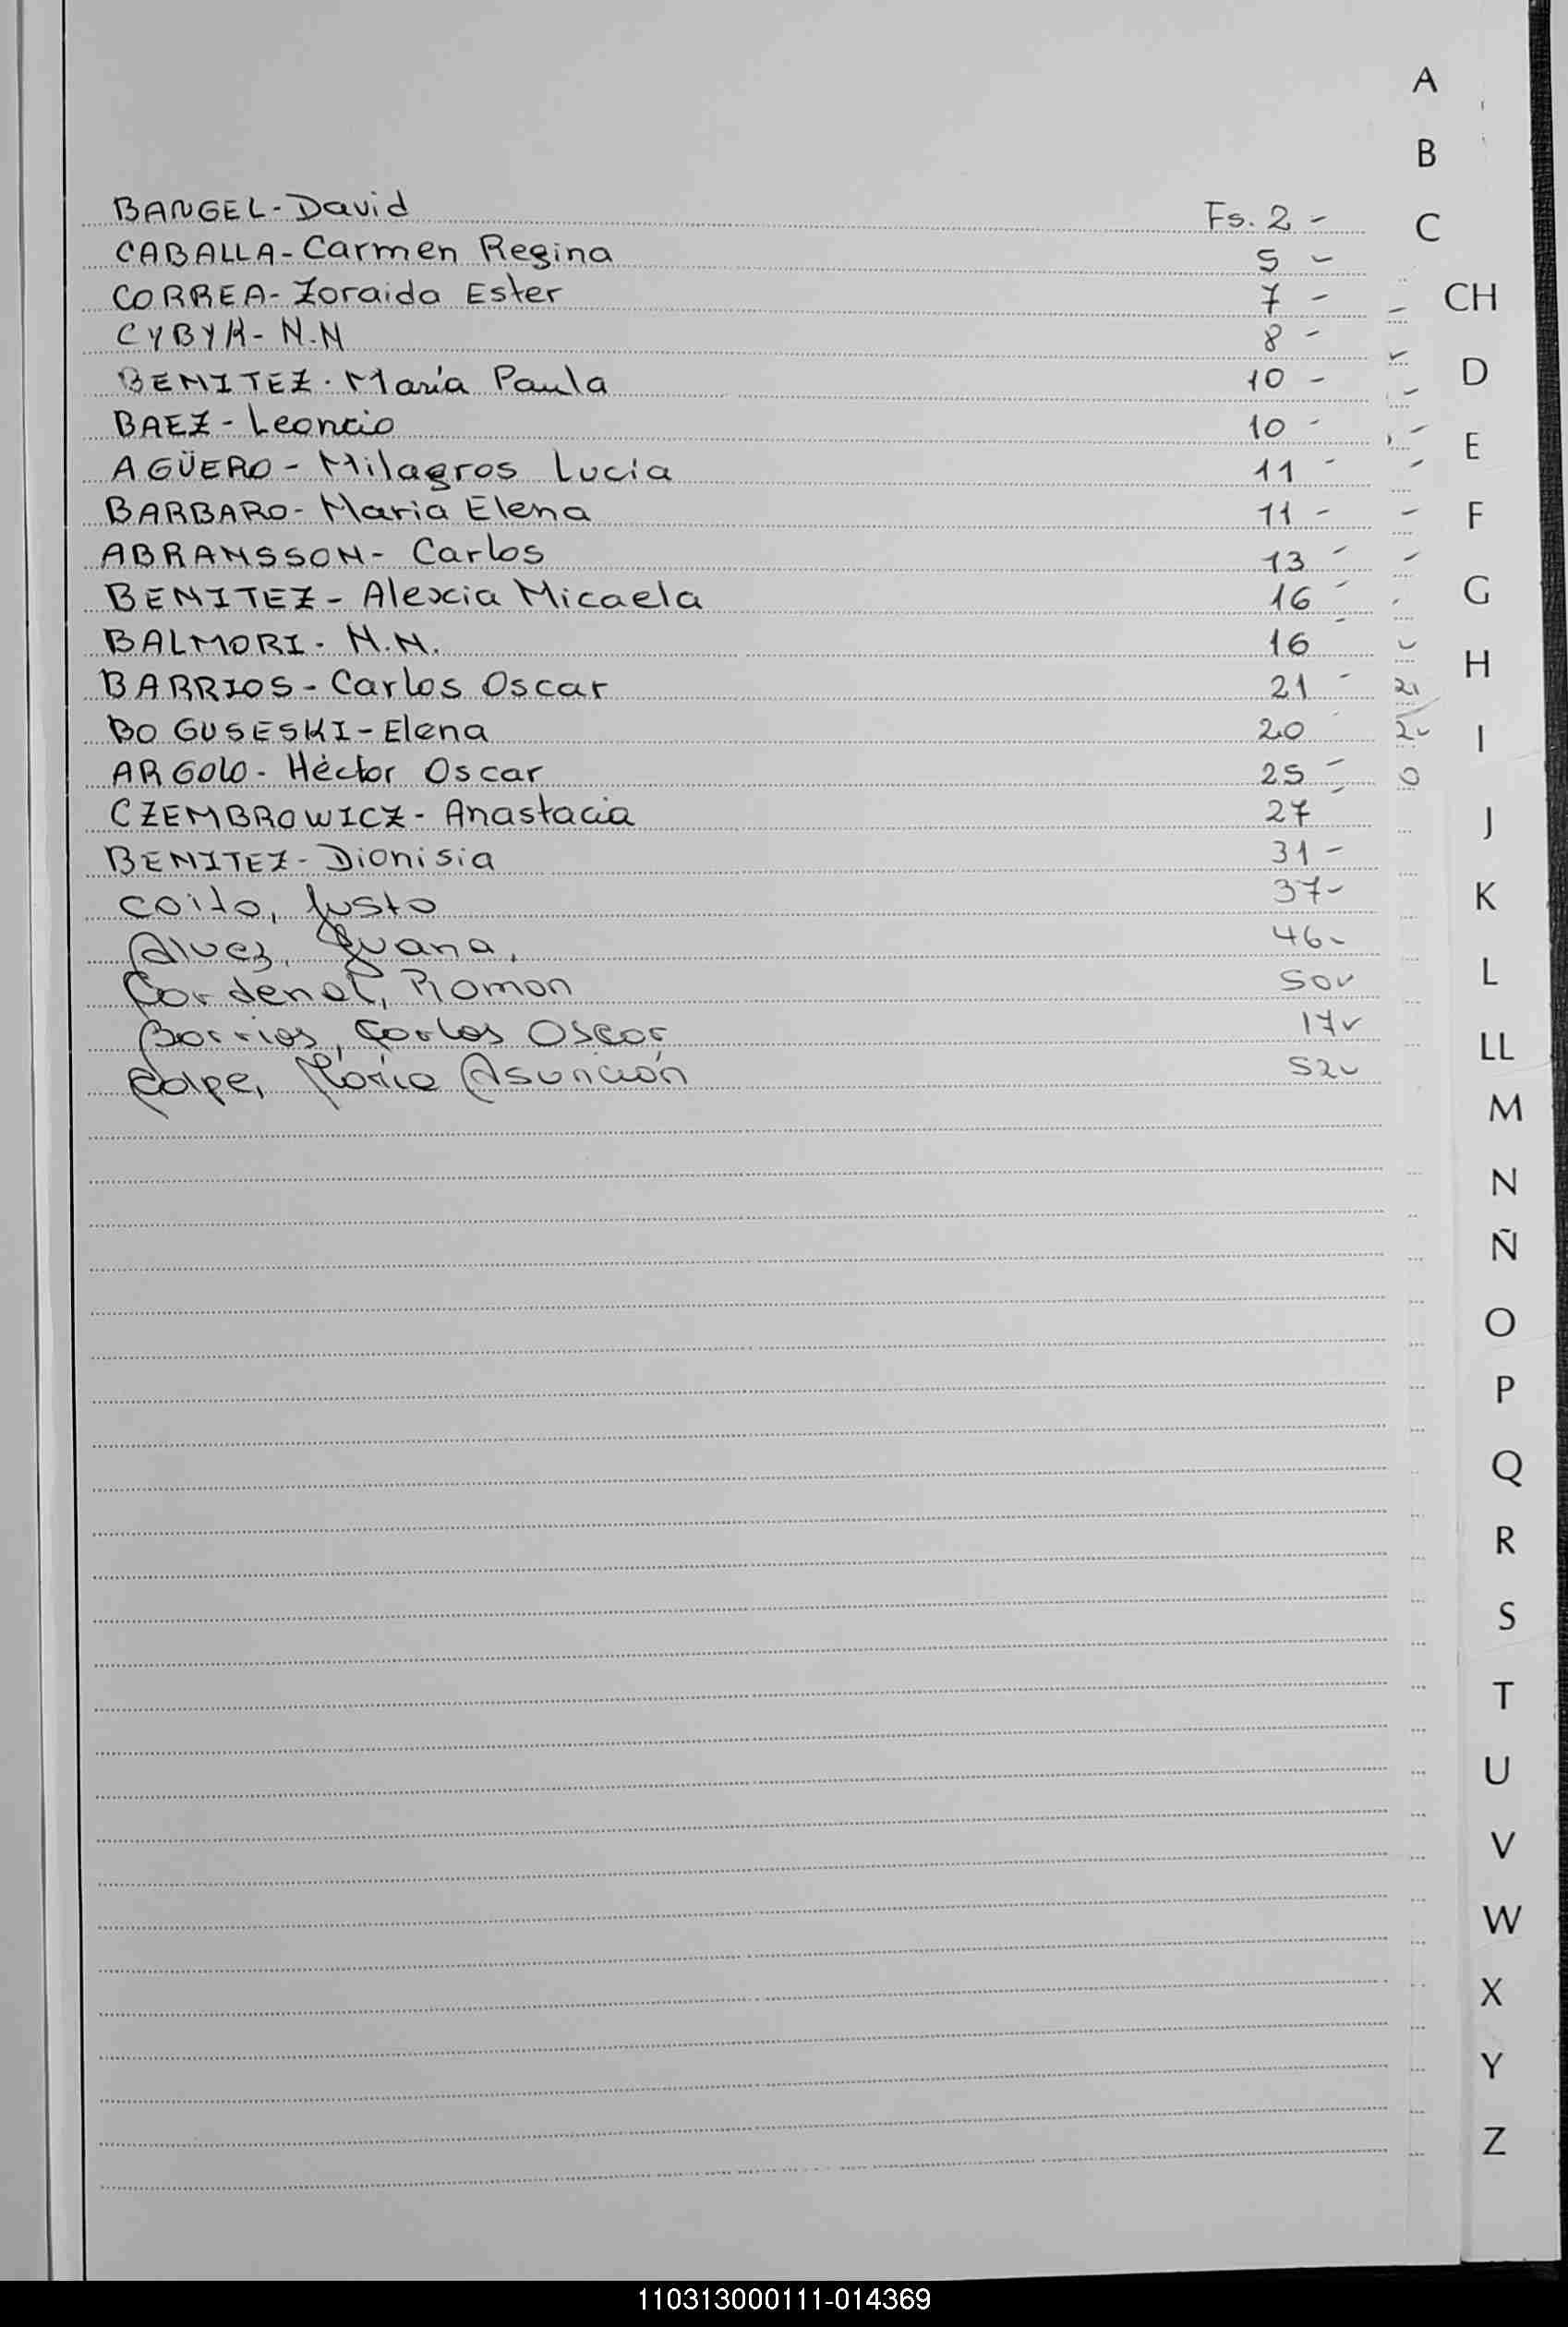 A
B
BANGEL - David Fs. 2 -
C
CABALLA - Carmen Regina 5 -
CORREA - Zoraida Ester 7 -
CH
CYBYK - N.N 8 -
BENITEZ - María Paula 10 -
D
BAEZ - Leoncio 10 -
E
AGÜERO - Milagros Lucía 11 -
BARBARO - Maria Elena 11 -
F
ABRANSSON - Carlos 13 -
BENITEZ - Alexia Micaela 16 -
G
BALMORI - N.N. 16 -
H
BARRIOS - Carlos Oscar 21 -
BOGUSESKI - Elena 20 -
I
ARGOLO - Héctor Oscar 25 -
CZEMBROWICZ - Anastacia 27 -
J
BENITEZ - Dionisia 31 -
coito, Justo 37 -
K
Alvez, Juana, 46 -
Cardenal, Ramon 50 v
L
Barrios, Carlos Oscar, 17 v
LL
Colpe, María Asunción 52 v
M
N
Ñ
O
P
Q
R
S
T
U
V
W
X
Y
Z
110313000111-014369